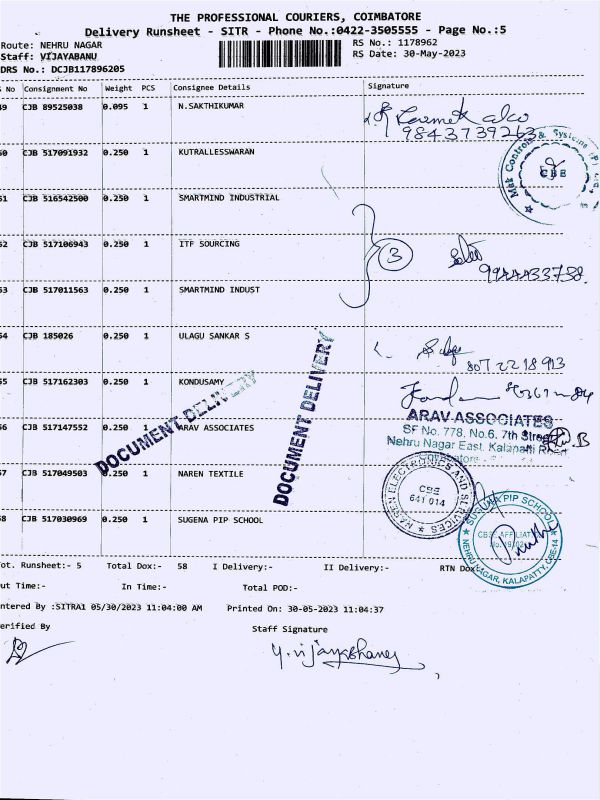 THE PROFESSIONAL COURIERS, COIMBATORE
Delivery Runsheet - SITR - Phone No.:0422-3505555 - Page No.:5
Route: NEHRU NAGAR
RS No.: 1178962
Staff: VIJAYABANU
RS Date: 30-May-2023
DRS No.: DCJB117896205
No Consignment No Weight PCS Consignee Details Signature
49 CJB 89525038 0.095 1 N.SAKTHIKUMAR
9843739263
50 CJB 517091932 0.250 1 KUTRALLESSWARAN
Mak Controls & Systems (P)
CBE
51 CJB 516542500 0.250 1 SMARTMIND INDUSTRIAL
52 CJB 517106943 0.250 1 ITF SOURCING
3
53 CJB 517011563 0.250 1 SMARTMIND INDUST
54 CJB 185026 0.250 1 ULAGU SANKAR S
8072218913
55 CJB 517162303 0.250 1 KONDUSAMY
56 CJB 517147552 0.250 1 ARAV ASSOCIATES
ARAV ASSOCIATES
SF No. 778, No.6, 7th Street
Nehru Nagar East, Kalapatti Road
DOCUMENT DELIVERY
DOCUMENT DELIVERY
57 CJB 517049503 0.250 1 NAREN TEXTILE
NAREN ELECTRONICS AND SERVICES
CBE
641 014
58 CJB 517030969 0.250 1 SUGENA PIP SCHOOL
SUGUNA PIP SCHOOL
NEHRU NAGAR, KALAPATTY, CBE-14
Tot. Runsheet:- 5 Total Dox:- 58 I Delivery:- II Delivery:- RTN Dox
Out Time:- In Time:- Total POD:-
Entered By :SITRA1 05/30/2023 11:04:00 AM Printed On: 30-05-2023 11:04:37
Verified By Staff Signature